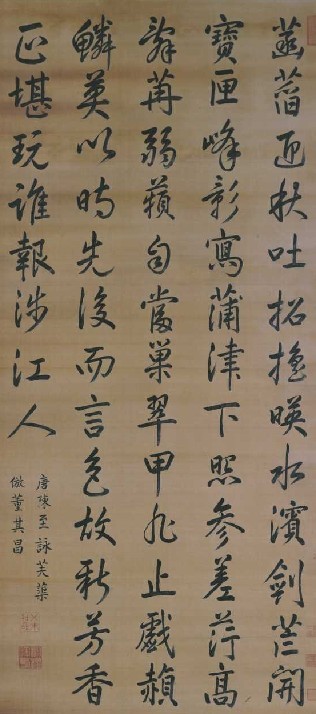 菡萏迎秋吐招搖映水濱劍芒開
寶匣峰影寫蒲津下照參差荇高
辭苒弱蘋自當巢翠甲非止戲赬
鱗莫以時先後而言色故新芳香
正堪玩誰報涉江人
唐陳至詠芙蕖
倣董其昌